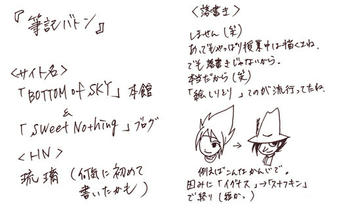 『筆記バトン』
<サイト名>
「BOTTOM of SKY」本館
&
「Sweet Nothing」ブログ
<HN>
琉璃(何気に初めて
書いたかも)
<落書き>
しません(笑)
あ、でもやっぱり授業中は描くよね。
でも落書きじゃないから。
本当だから(笑)
「絵しりとり」てのが流行ってたね。
例えばこんなかんじで。
因みに「イグナス」→「スナフキン」
で終了(誰か。)